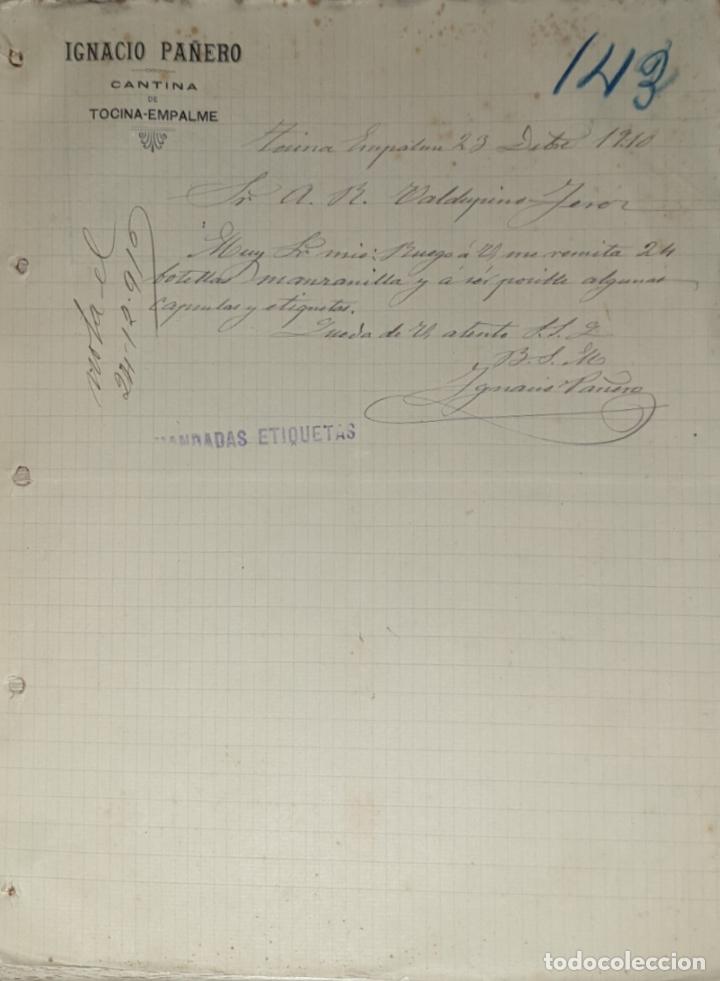 IGNACIO PAÑERO
CANTINA
DE
TOCINA-EMPALME
143
Tocina Empalme 23 Dbre 1910
Sr. A. R. Valdespino Jerez
Muy Sr. mio: Ruego á V. me remita 24
botellas manzanilla y á sér posible algunas
capsulas y etiquetas.
Queda de V. atento S. S. Q
B. S. M
Ignacio Pañero
nota el
24-12-910
MANDADAS ETIQUETAS
todocoleccion
todocoleccion.net